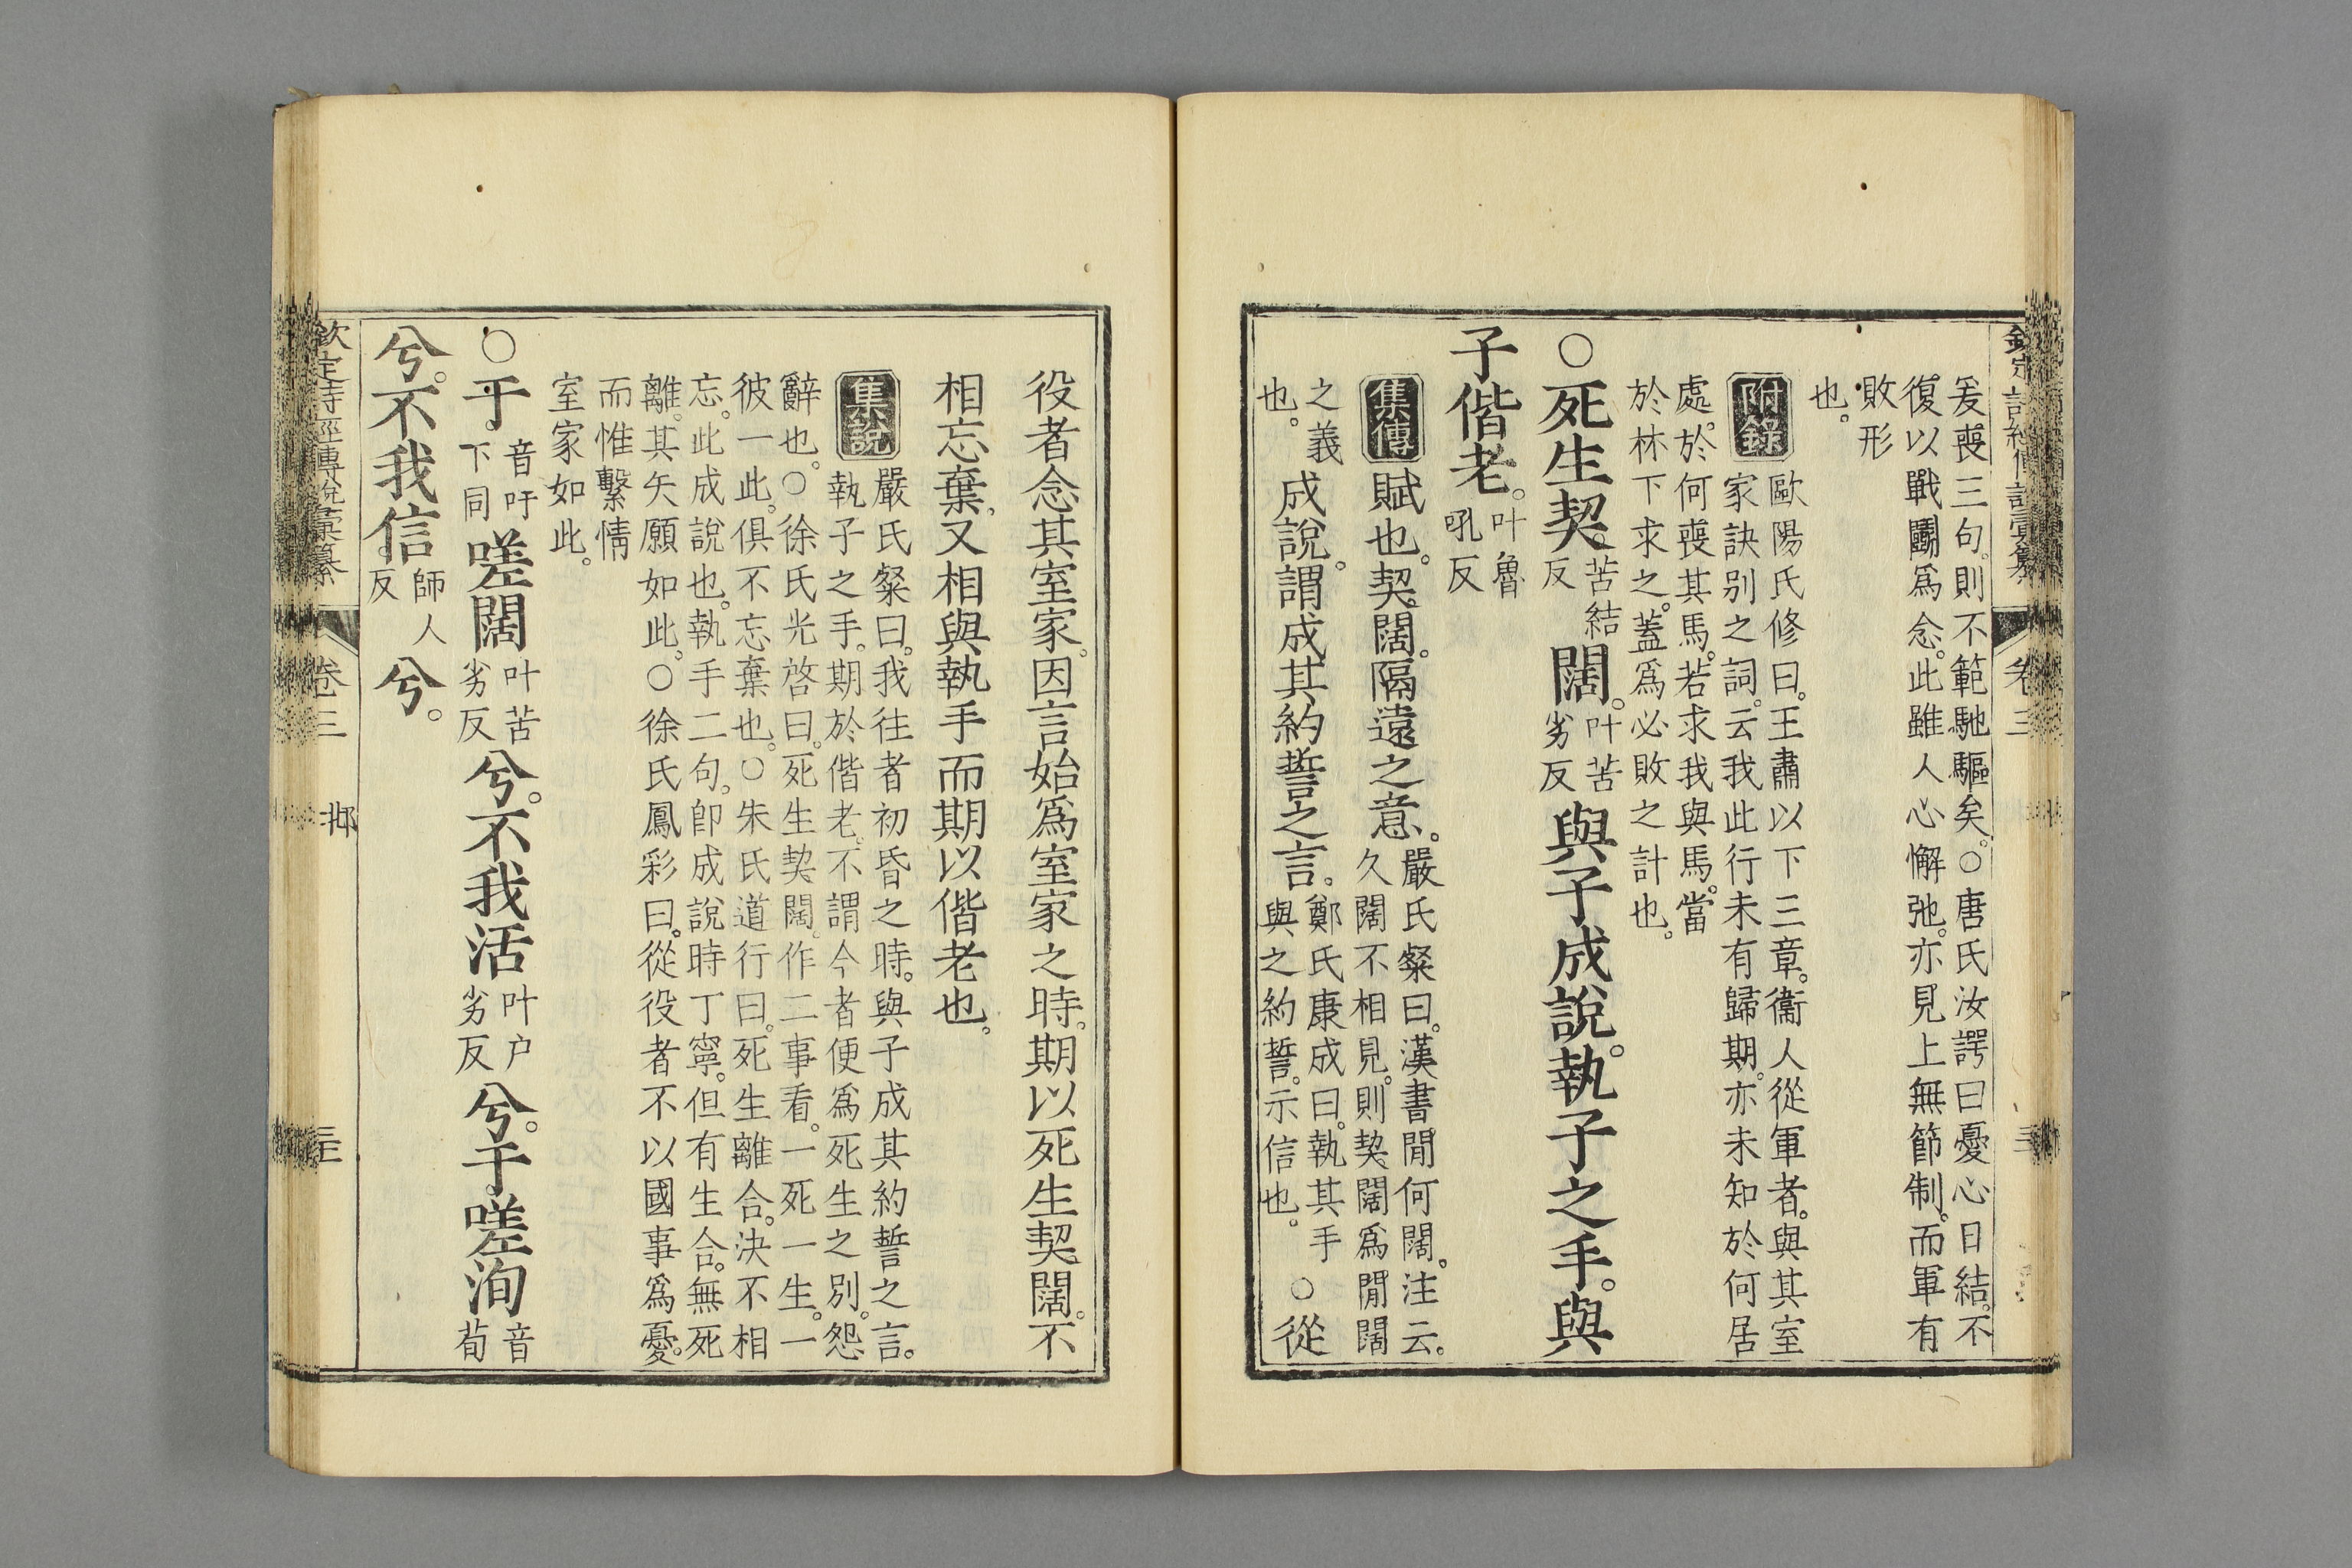 欽定詩經傳說彙纂 卷三
爰喪三句。則不範馳驅矣。○唐氏汝諤曰憂心日結。不
復以戰鬭爲念。此雖人心懈弛。亦見上無節制。而軍有
敗形
也。
附錄 歐陽氏修曰。王肅以下三章。衞人從軍者。與其室
家訣別之詞。云我此行未有歸期。亦未知於何居
處。於何喪其馬。若求我與馬。當
於林下求之。蓋爲必敗之計也。
○死生契。苦結反闊。叶苦劣反與子成說。執子之手。與
子偕老。叶魯吼反
集傳 賦也。契闊。隔遠之意。嚴氏粲曰。漢書。閒何闊。注云。久闊不相見。則契闊爲閒闊
之義也。成說。謂成其約誓之言。鄭氏康成曰。執其手與之約誓。示信也。○從
役者念其室家。因言始爲室家之時。期以死生契闊。不
相忘棄。又相與執手而期以偕老也。
集說 嚴氏粲曰。我往者初昏之時。與子成其約誓之言。
執子之手。期於偕老。不謂今者便爲死生之別。怨
辭也。○徐氏光啓曰。死生契闊。作二事看。一死一生。一
彼一此。俱不忘棄也。○朱氏道行曰。死生離合。決不相
忘。此成說也。執手二句。卽成說時丁寧。但有生合。無死
離。其矢願如此。○徐氏鳳彩曰。從役者不以國事爲憂。
而惟繫情
室家如此。
○于音吁下同嗟闊叶苦劣反兮。不我活叶户劣反兮。于嗟洵音荀
兮。不我信師人反兮。
欽定詩經傳說彙纂 卷三 邶